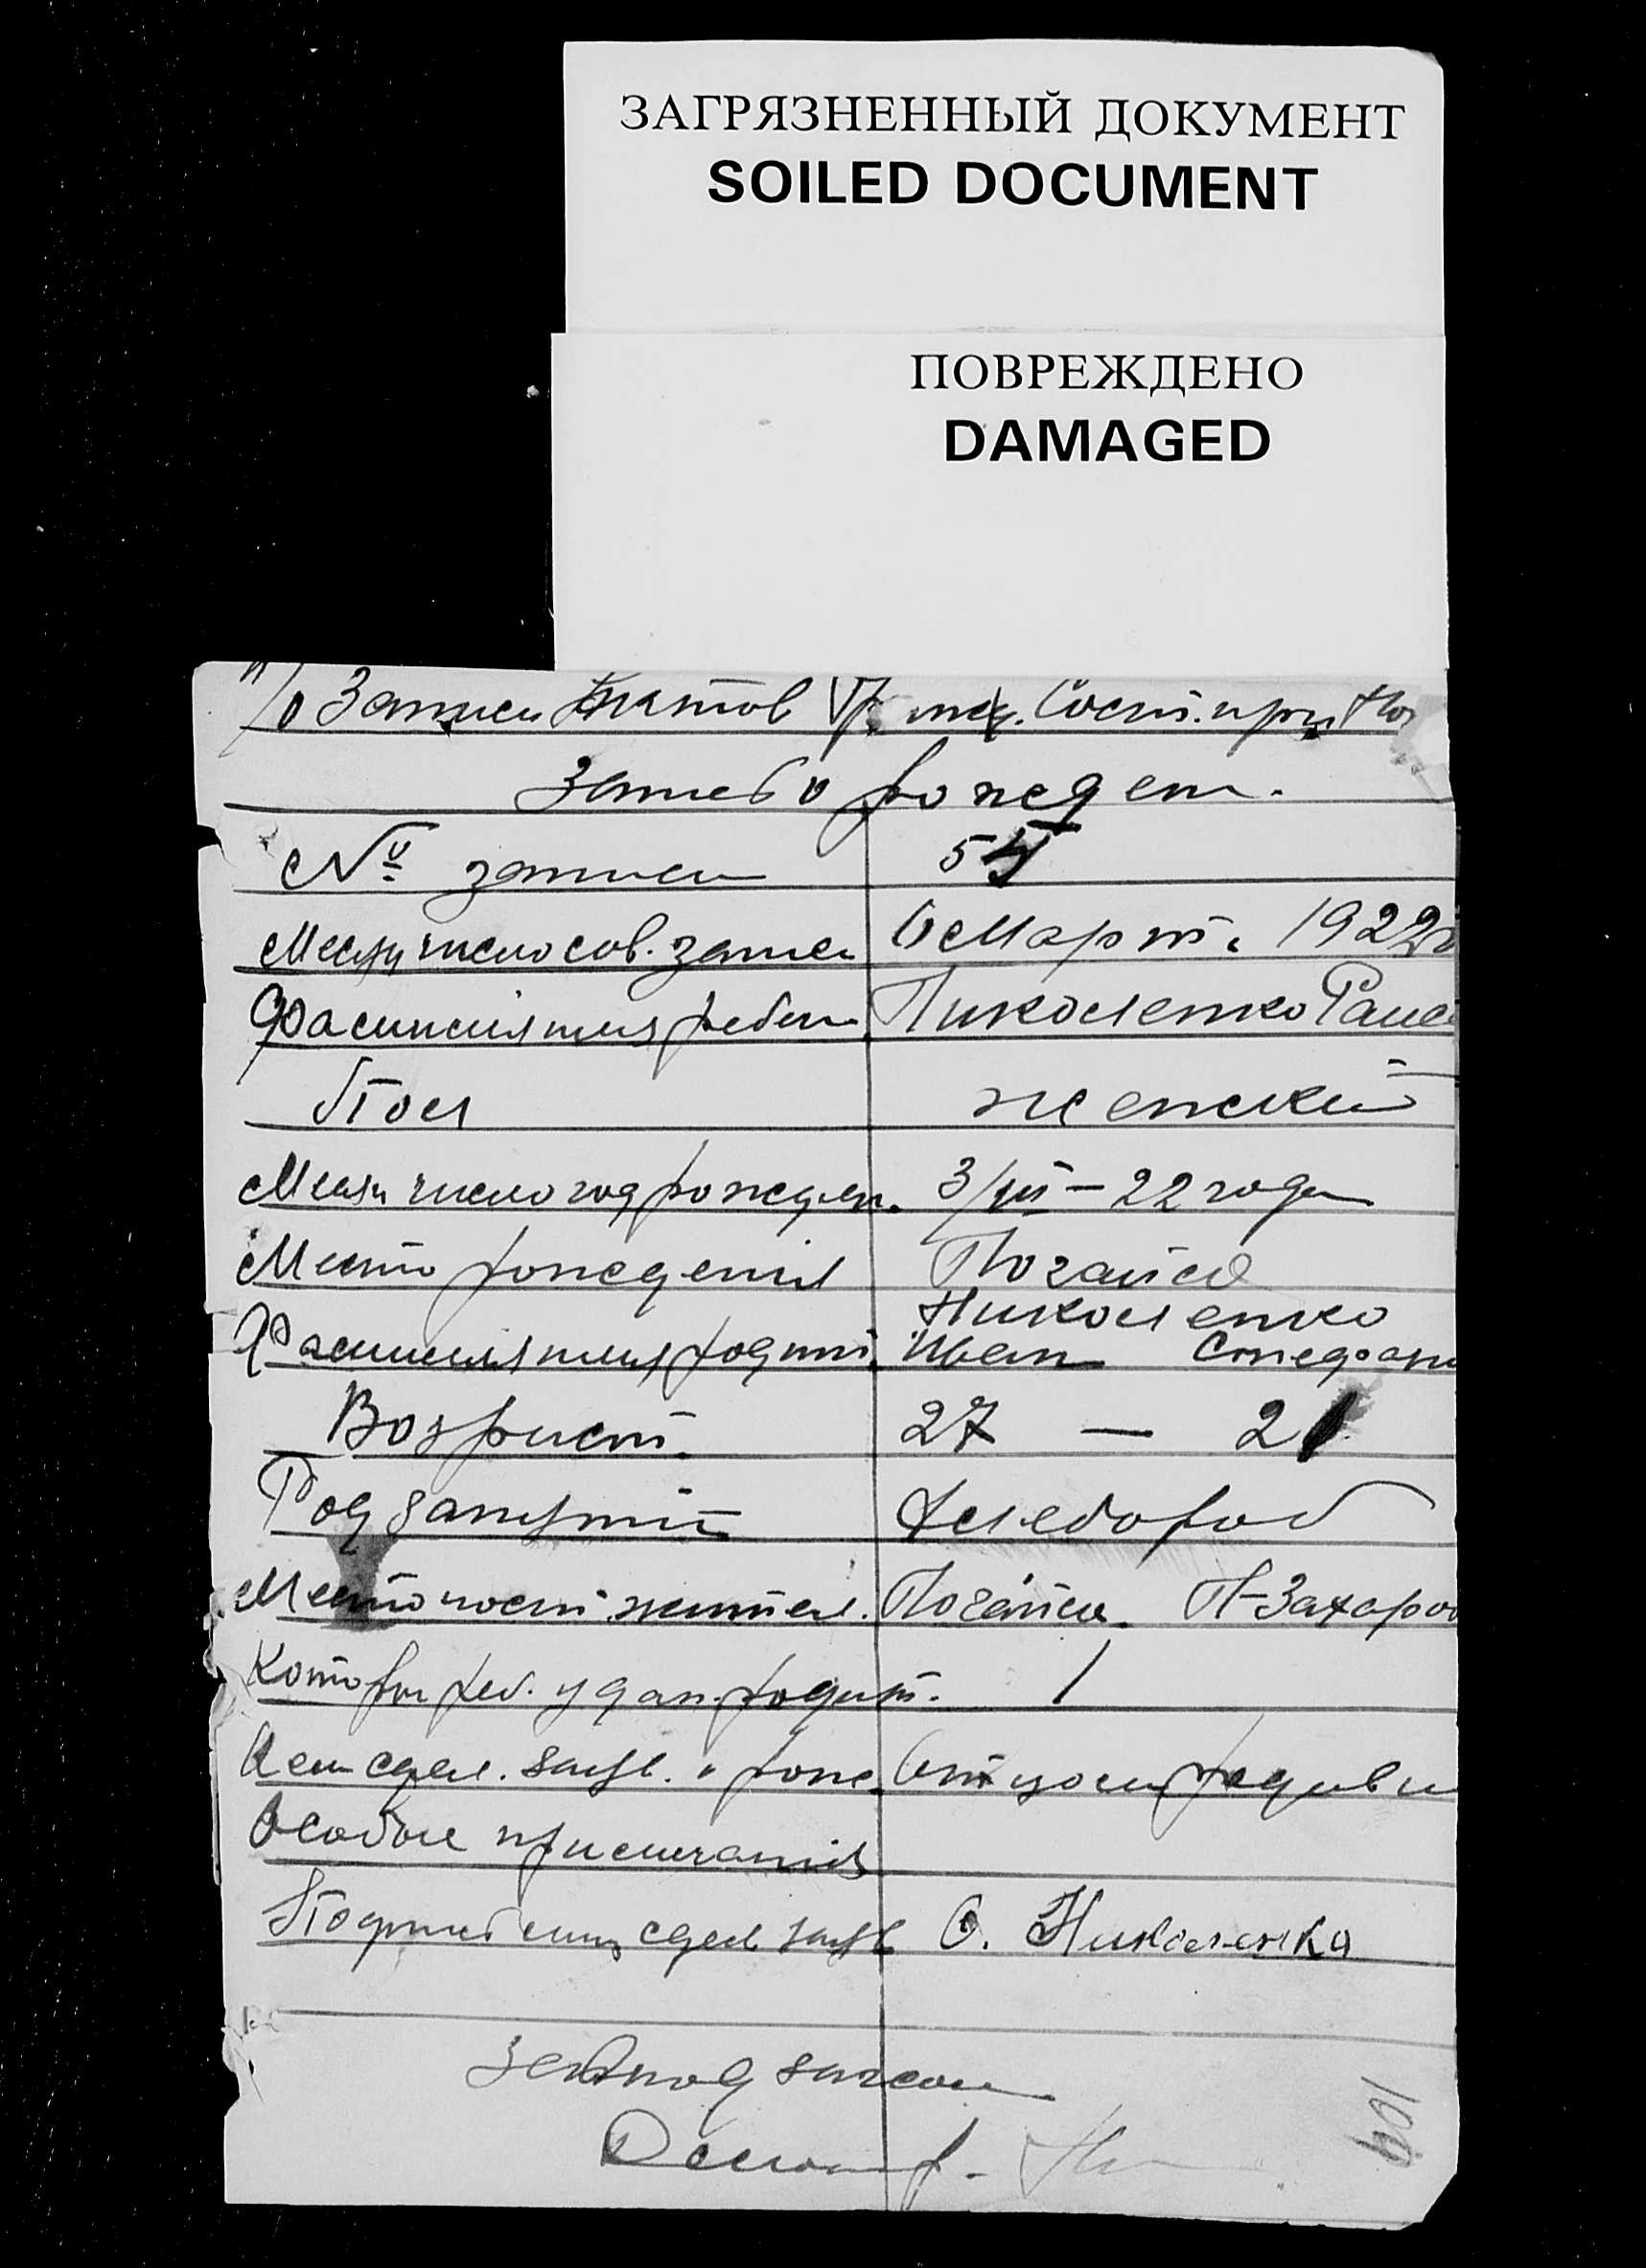 ЗАГРЯЗНЕННЫЙ ДОКУМЕНТ
SOILED DOCUMENT
ПОВРЕЖДЕНО
DAMAGED
п/о Записи Актов Гр. Сост. при
Запись о рожден.
№ записи 54
Месяц число сов. записи Март. 1922
Фамилия имя ребен. Николенко Раиса
Пол женский
Месяц число год рожден. 3/III – 22 года
Место рождения Погайса
Николенко
Фамилия имя родит. Иван Стефани
Возраст. 27 — 21
Род занятий Хлебороб
Место пост. жител. Погайса. П-Захаров
Которы реб. у дан. родит. 1
Кем сдел. заяв. о рож. Отцом
Особые примечания
Подпись лиц сдел заяв О. Николенка
Завподзагсом
Делопр.
109